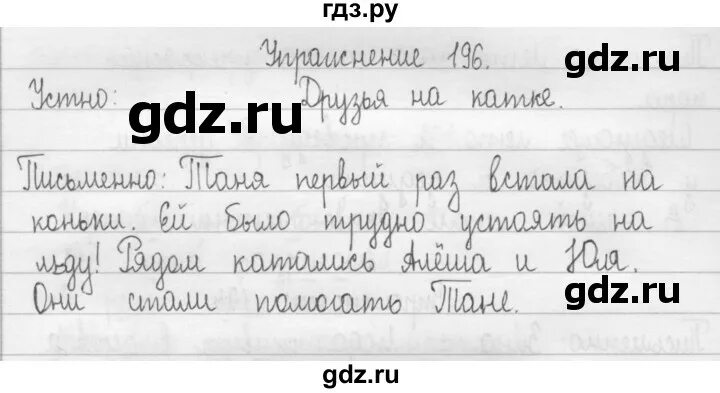 гдз.ру
Упражнение 196.
gdz.ru
Устно: Друзья на катке.
gdz.ru
Письменно: Таня первый раз встала на
коньки. Ей было трудно устоять на
льду! Рядом катались Алёша и Юля.
gdz.ru
Они стали помогать Тане.
gdz.ru